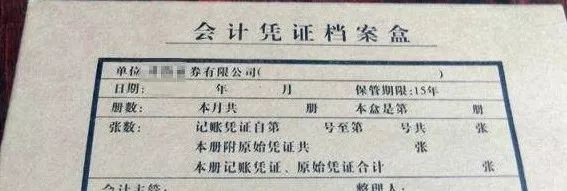 会计凭证档案盒
单位 券有限公司( )
日期: 年 月 保管期限:15年
册数: 本月共 册 本盒是第 册
张数: 记账凭证自第 号至第 号共 张
本册附原始凭证共 张
本册记账凭证、原始凭证合计 张
会计主管: 整理人: